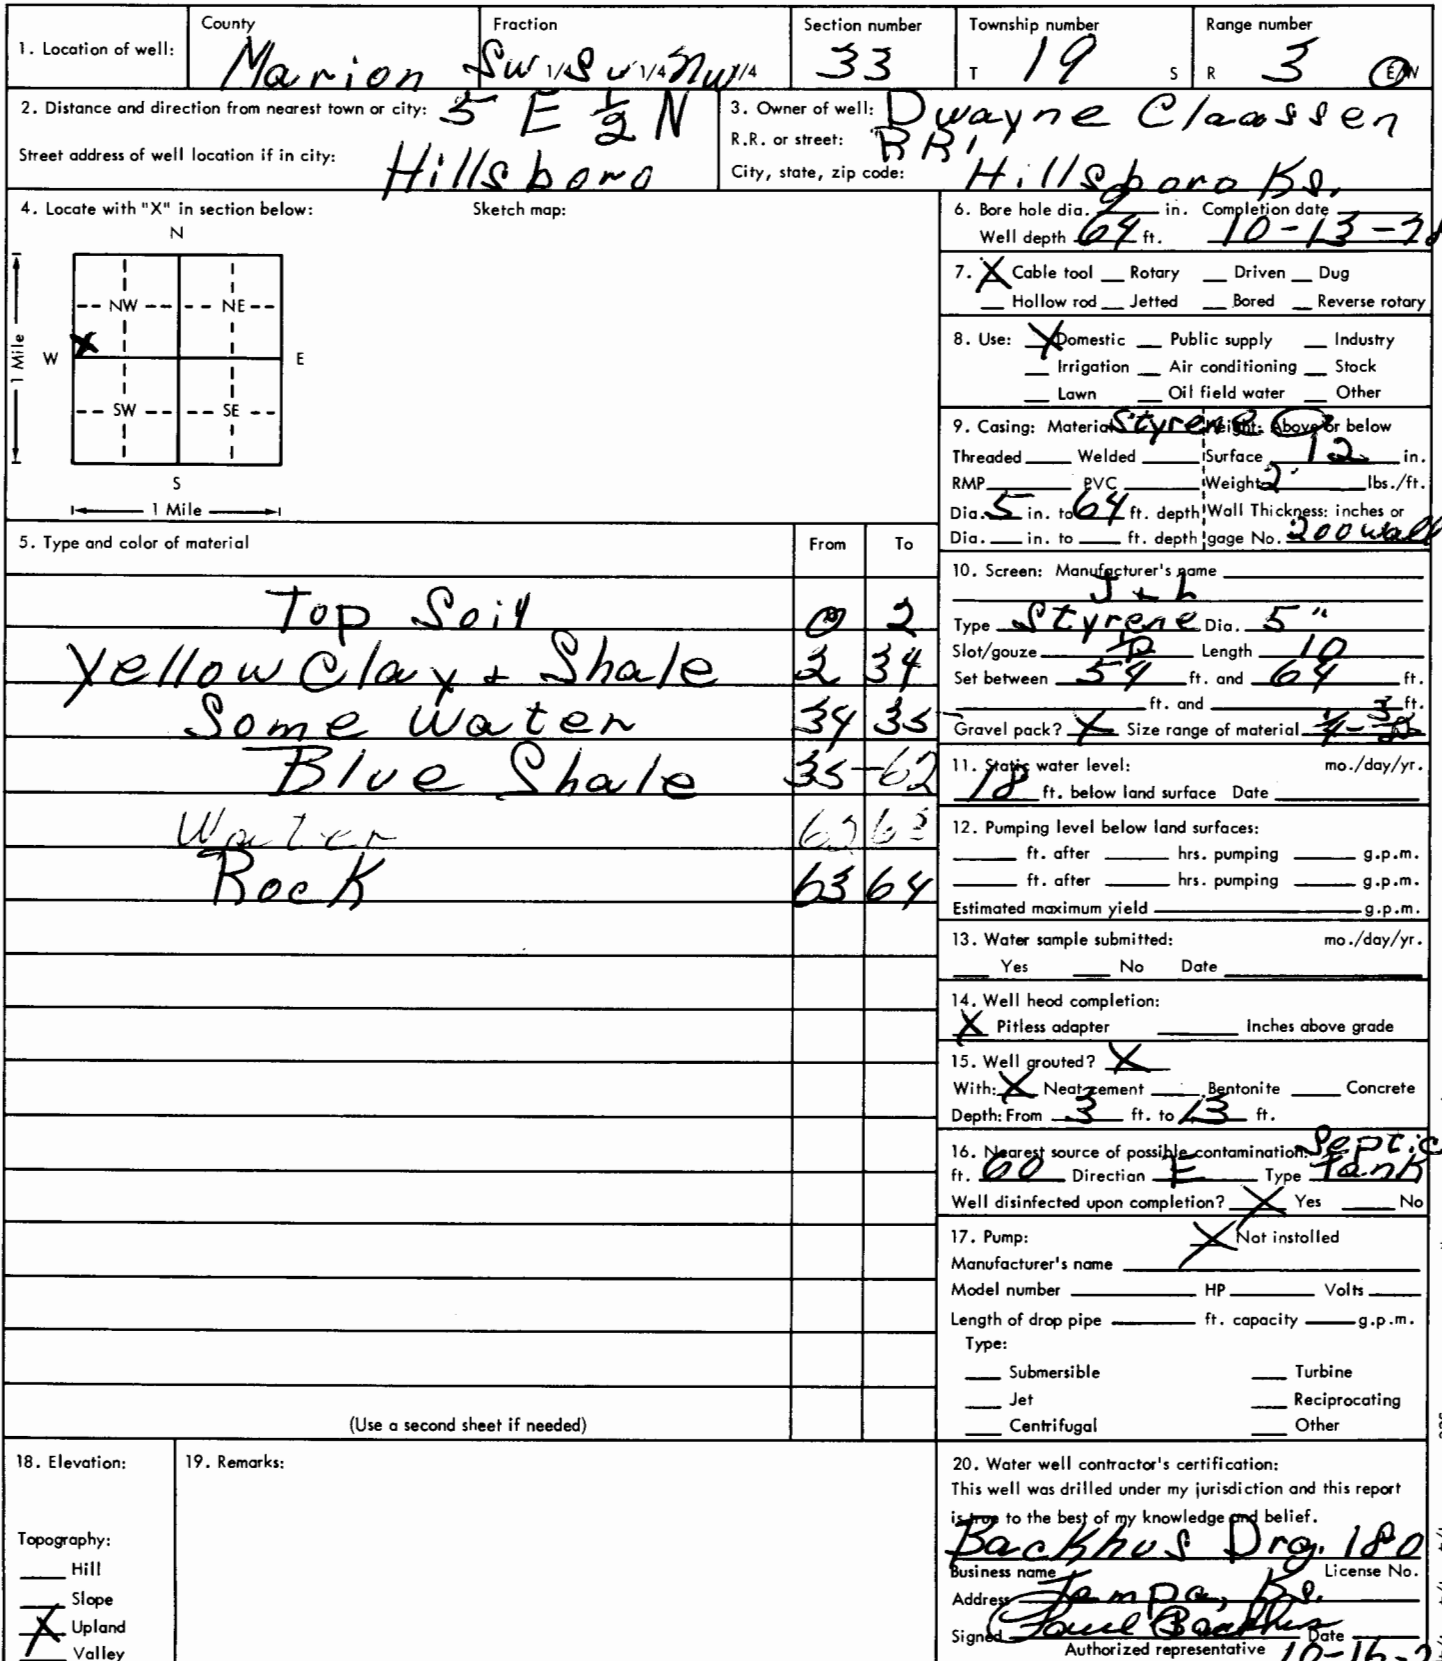 County Fraction Section number Township number Range number
1. Location of well: Marion SW 1/4 SW 1/4 NW 1/4 33 T 19 S R 3 E/W
2. Distance and direction from nearest town or city: 5 E 1/2 N
Street address of well location if in city: Hillsboro
3. Owner of well: Dwayne Claassen
R.R. or street: RR1
City, state, zip code: Hillsboro Ks.
4. Locate with "X" in section below: Sketch map:
N
NW NE
1 Mile W X E
SW SE
S
1 Mile
5. Type and color of material From To
Top Soil 0 2
Yellow Clay + Shale 2 34
Some Water 34 35
Blue Shale 35-62
Water 62 63
Rock 63 64
(Use a second sheet if needed)
6. Bore hole dia. 9 in. Completion date
Well depth 64 ft. 10-13-78
7. X Cable tool Rotary Driven Dug
Hollow rod Jetted Bored Reverse rotary
8. Use: X Domestic Public supply Industry
Irrigation Air conditioning Stock
Lawn Oil field water Other
9. Casing: Material Styrene Height: Above or below
Threaded Welded Surface 12 in.
RMP PVC Weight 2 lbs./ft.
Dia. 5 in. to 64 ft. depth Wall Thickness: inches or
Dia. in. to ft. depth gage No. 200 wall
10. Screen: Manufacturer's name
J + L
Type Styrene Dia. 5"
Slot/gouze Length 10
Set between 54 ft. and 64 ft.
ft. and ft.
Gravel pack? X Size range of material
11. Static water level: mo./day/yr.
18 ft. below land surface Date
12. Pumping level below land surfaces:
ft. after hrs. pumping g.p.m.
ft. after hrs. pumping g.p.m.
Estimated maximum yield g.p.m.
13. Water sample submitted: mo./day/yr.
Yes No Date
14. Well head completion:
X Pitless adapter Inches above grade
15. Well grouted? X
With: X Neat cement Bentonite Concrete
Depth: From 3 ft. to 13 ft.
16. Nearest source of possible contamination: Septic
ft. 60 Direction E Type Tank
Well disinfected upon completion? X Yes No
17. Pump: X Not installed
Manufacturer's name
Model number HP Volts
Length of drop pipe ft. capacity g.p.m.
Type:
Submersible Turbine
Jet Reciprocating
Centrifugal Other
18. Elevation:
Topography:
Hill
Slope
X Upland
Valley
19. Remarks:
20. Water well contractor's certification:
This well was drilled under my jurisdiction and this report
is true to the best of my knowledge and belief.
Backhus Drg. 180
Business name License No.
Address Tampa, Ks.
Signed Paul Backhus Date
Authorized representative 10-16-